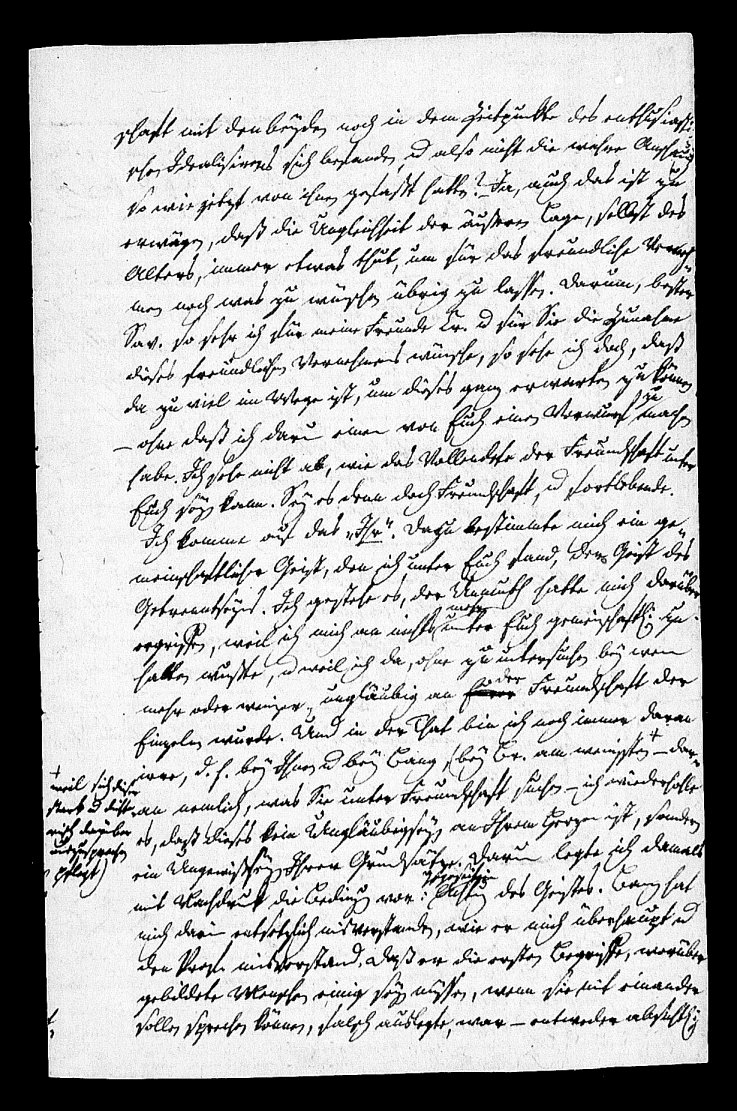 schaft mit den beyden noch in dem Zeitpunkte des enthusiasti-
schen Idealisirens sich befanden, u also nicht die wahre Ansicht
so wie jetzt von ihnen gefaßt hatten? Ja, auch das ist zu
erwägen, daß die Ungleichheit der äußern Lage, selbst des
Alters, immer etwas thut, um für das freundliche Verneh-
men noch was zu wünschen übrig zu lassen. Darum, bester
Sav. so sehr ich für meine Freunde Cr. u für Sie die Zunahme
dieses freundlichen Vernehmens wünsche, so sehe ich doch, daß
da zu viel im Wege ist, um dieses ganz erwarten zu können
– ohne daß ich darum einem von Euch einen Vorwurf zu machen
habe. Ich sehe nicht ab, wie das Vollendete der Freundschaft unter
Euch seyn kann. Sey es denn doch Freundschaft, u fortlebende.
Ich komme auf das „Ihr“. Dazu bestimmte mich ein ge-
meinschaftlicher Geist, den ich unter Euch fand, der Geist des
Getrenntseyns. Ich gestehe es, der Unmuth hatte mich darüber
ergriffen, weil ich mich an nichts mehr unter Euch gemeinschaftl. zu
halten wußte, u weil ich da, ohne zu untersuchen bey wem
mehr oder weniger, ungläubig an der Freundschaft der
Einzelnen wurde. Und in der That bin ich noch immer daran
irre, d. h. bey Ihnen u bey Bang (bey Cr. am wenigsten + – dar-
an nemlich, was Sie unter Freundschaft suchen – ich wiederhole
es, daß dieses kein Ungläubigseyn an Ihrem Herzen ist, sondern
ein Ungewißseyn Ihrer Grundsätze. Darum legte ich damals
mit Nachdruck die Beding. vor: Achtung des Geistes. Bang hat
mich darin entsetzlich misverstanden, wie er mich überhaupt u
den Prof. misverstand. Daß er die ersten Begriffe, worüber
gebildete Menschen einig seyn müssen, wenn sie mit einander
sollen sprechen können, falsch auslegte, war – entweder absichtlich
+
weil sich dieser
stark u
mich darüber
auszusprechen
pflegt)